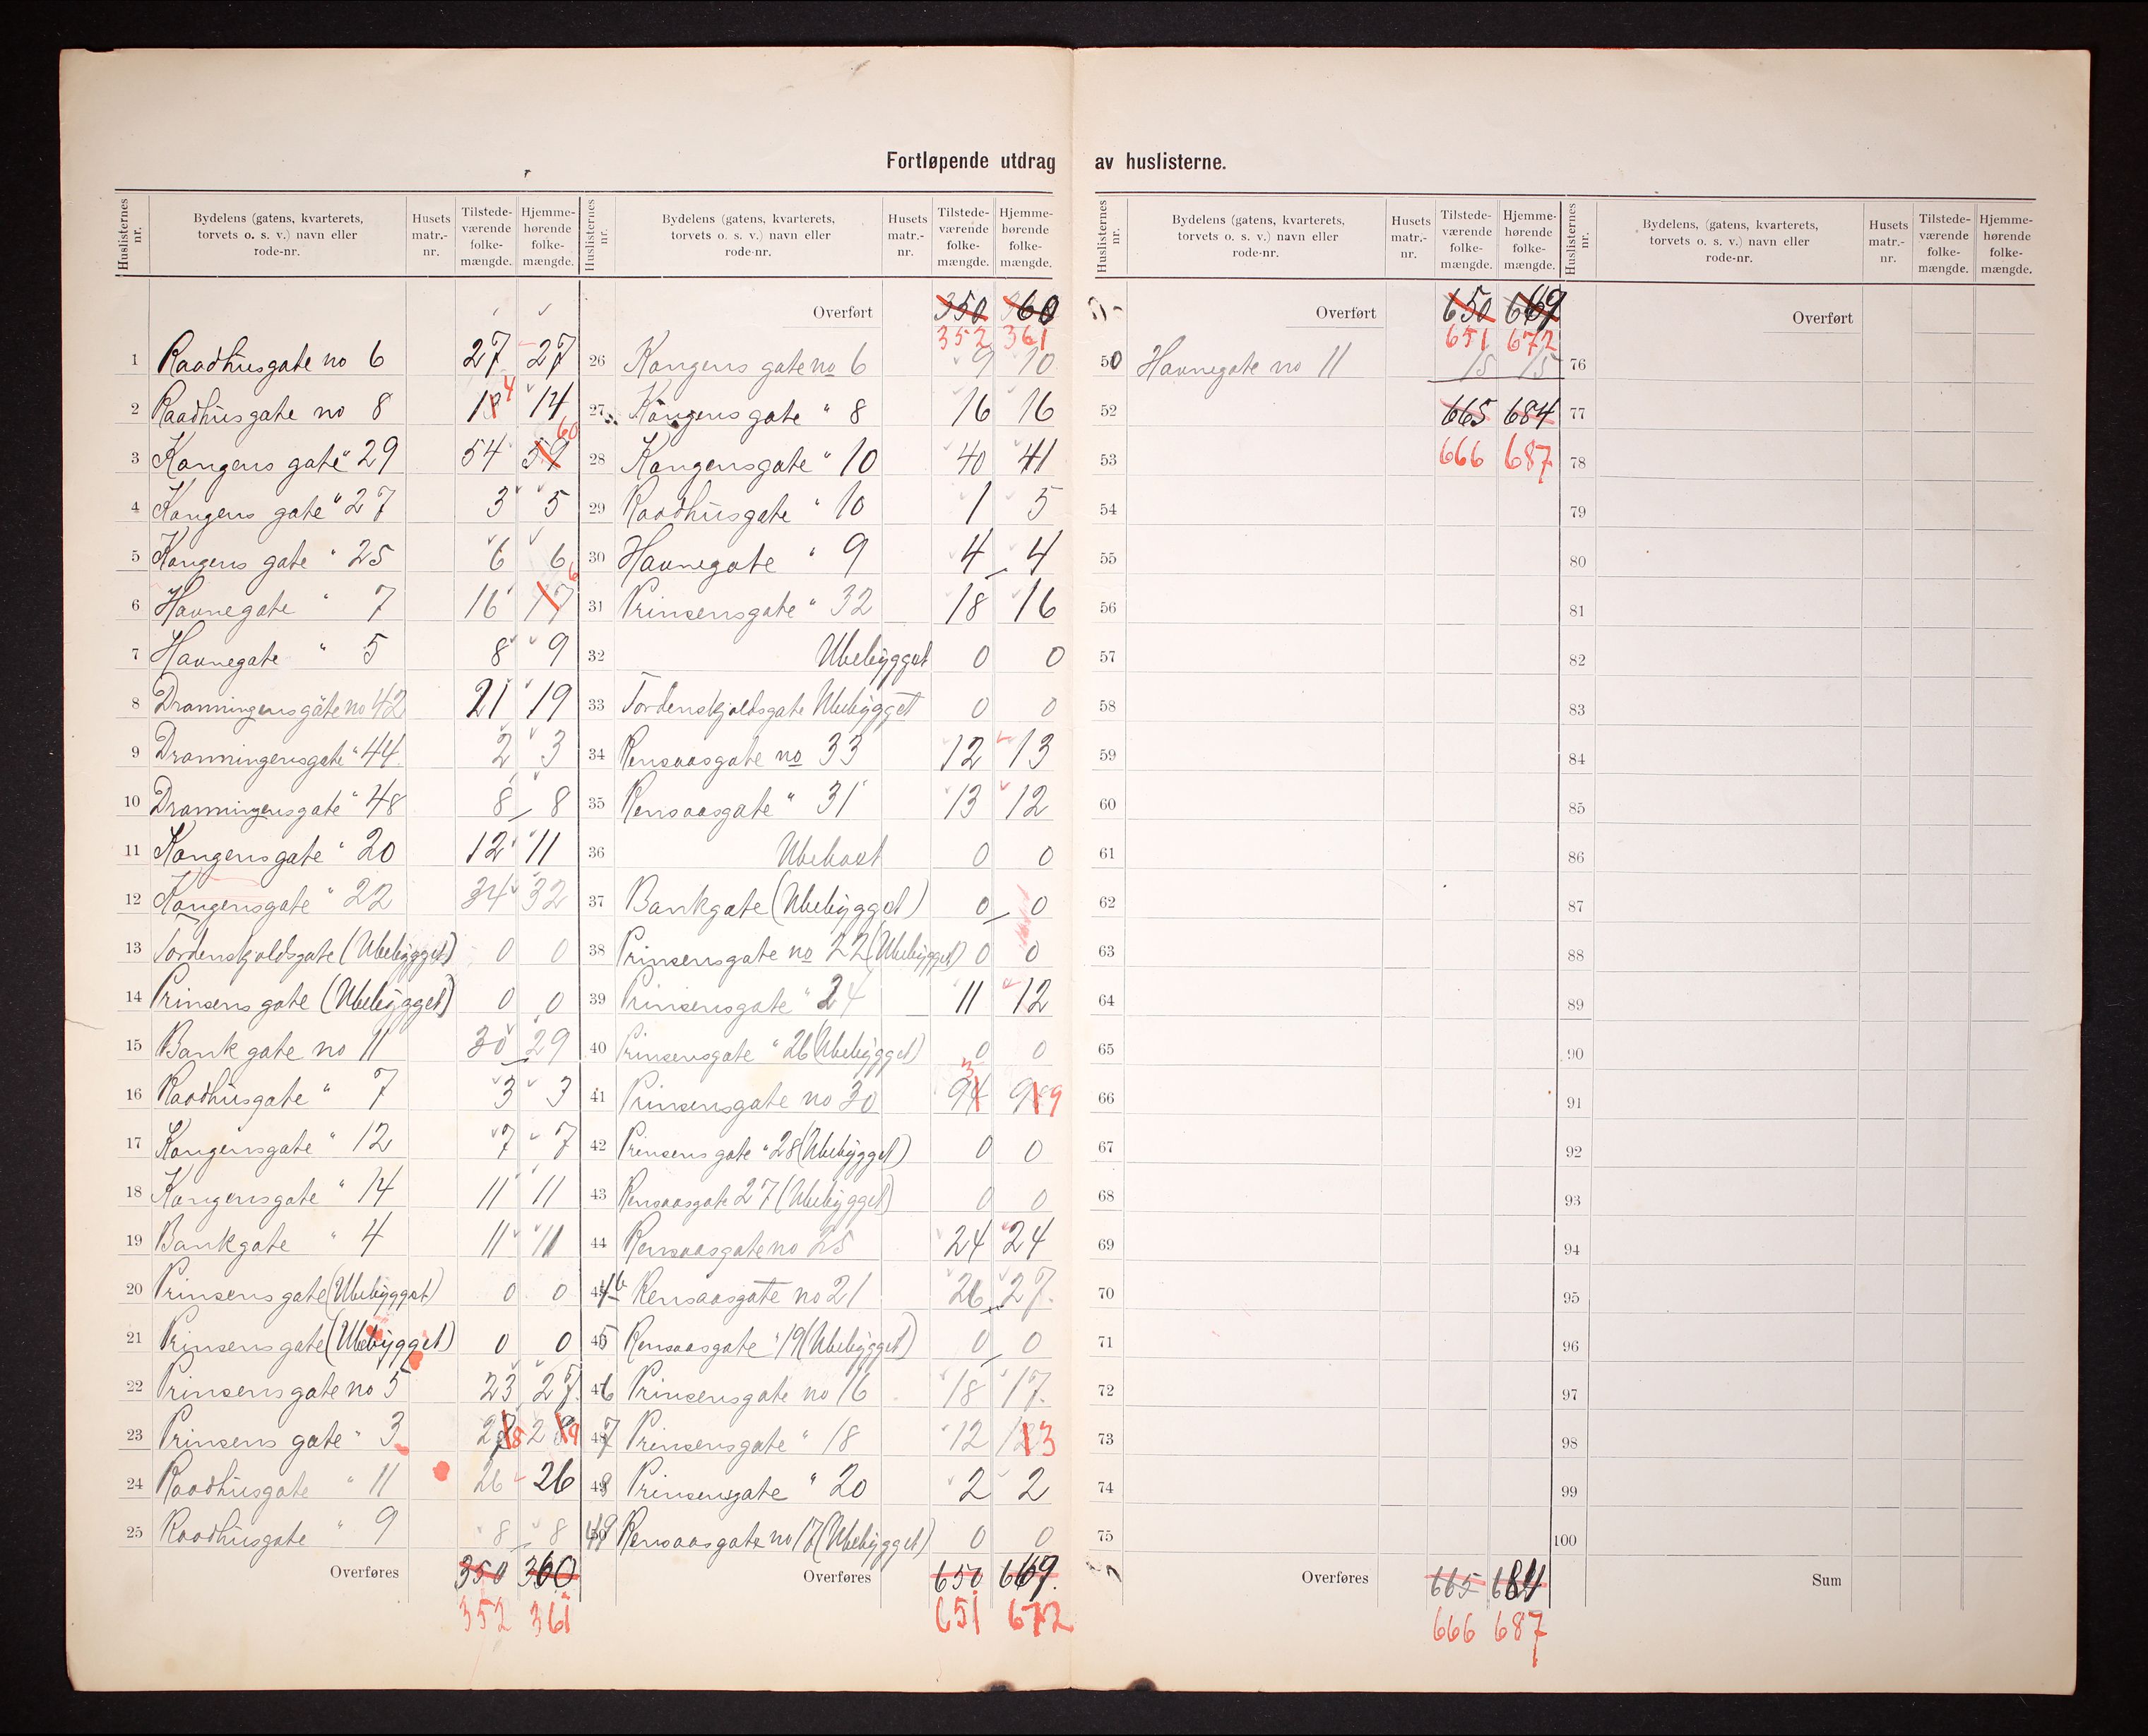 Fortløpende utdrag av huslisterne.
Huslisternes nr. Bydelens (gatens, kvarterets, torvets o. s. v.) navn eller rode-nr. Husets matr.-nr. Tilstede-værende folke-mængde. Hjemme-hørende folke-mængde.
1 Raadhusgate no 6 27 27
2 Raadhusgate no 8 13 4 14
3 Kongens gate " 29 54 59 60
4 Kongens gate " 27 3 5
5 Kongens gate " 25 6 6
6 Havnegate " 7 16 17 6
7 Havnegate " 5 8 9
8 Dronningensgate no 42 21 19
9 Dronningensgate " 44 2 3
10 Dronningensgate " 48 8 8
11 Kongensgate " 20 12 11
12 Kongensgate " 22 34 32
13 Tordenskjoldsgate (Ubebygget) 0 0
14 Prinsens gate (Ubebygget) 0 0
15 Bank gate no 11 30 29
16 Raadhusgate " 7 3 3
17 Kongensgate " 12 7 7
18 Kongensgate " 14 11 11
19 Bankgate " 4 11 11
20 Prinsens gate (Ubebygget) 0 0
21 Prinsens gate (Ubebygget) 0 0
22 Prinsens gate no 5 23 27
23 Prinsens gate " 3 27 8 28 9
24 Raadhusgate " 11 26 26
25 Raadhusgate " 9 8 8
Overføres 350 360
352 361
Huslisternes nr. Bydelens (gatens, kvarterets, torvets o. s. v.) navn eller rode-nr. Husets matr.-nr. Tilstede-værende folke-mængde. Hjemme-hørende folke-mængde.
Overført 350 360
352 361
26 Kongens gate no 6 9 10
27 Kongens gate " 8 16 16
28 Kongensgate " 10 40 41
29 Raadhusgate " 10 1 5
30 Havnegate " 9 4 4
31 Prinsensgate " 32 18 16
32 Ubebygget 0 0
33 Tordenskjoldsgate Ubebygget 0 0
34 Rensaasgate no 33 12 13
35 Rensaasgate " 31 13 12
36 Ubeboet 0 0
37 Bankgate (Ubebygget) 0 0
38 Prinsensgate no 22 (Ubebygget) 0 0
39 Prinsensgate " 24 11 12
40 Prinsensgate " 26 (Ubebygget) 0 0
41 Prinsensgate no 30 94 3 98 9
42 Prinsens gate " 28 (Ubebygget) 0 0
43 Rensaasgate 27 (Ubebygget) 0 0
44 Rensaasgate no 25 24 24
44b Rensaasgate no 21 26 27
45 Rensaasgate " 19 (Ubebygget) 0 0
46 Prinsensgate no 16 18 17
47 Prinsensgate " 18 12 12 3
48 Prinsensgate " 20 2 2
49 Rensaasgate no 17 (Ubebygget) 0 0
Overføres 650 669
651 672
Huslisternes nr. Bydelens (gatens, kvarterets, torvets o. s. v.) navn eller rode-nr. Husets matr.-nr. Tilstede-værende folke-mængde. Hjemme-hørende folke-mængde.
Overført 650 669
651 672
50 Havnegate no 11 15 15
52 665 684
53 666 687
54
55
56
57
58
59
60
61
62
63
64
65
66
67
68
69
70
71
72
73
74
75
Overføres 665 684
666 687
Huslisternes nr. Bydelens, (gatens, kvarterets, torvets o. s. v.) navn eller rode-nr. Husets matr.-nr. Tilstede-værende folke-mængde. Hjemme-hørende folke-mængde.
Overført
76
77
78
79
80
81
82
83
84
85
86
87
88
89
90
91
92
93
94
95
96
97
98
99
100
Sum